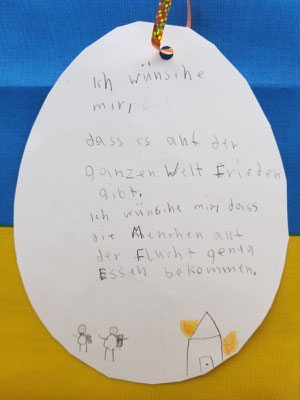 Ich wünsche
mir, das
dass es auf der
ganzen Welt Frieden
gibt.
Ich wünsche mir, dass
die Menchen auf
der Flucht genug
Essen bekommen.